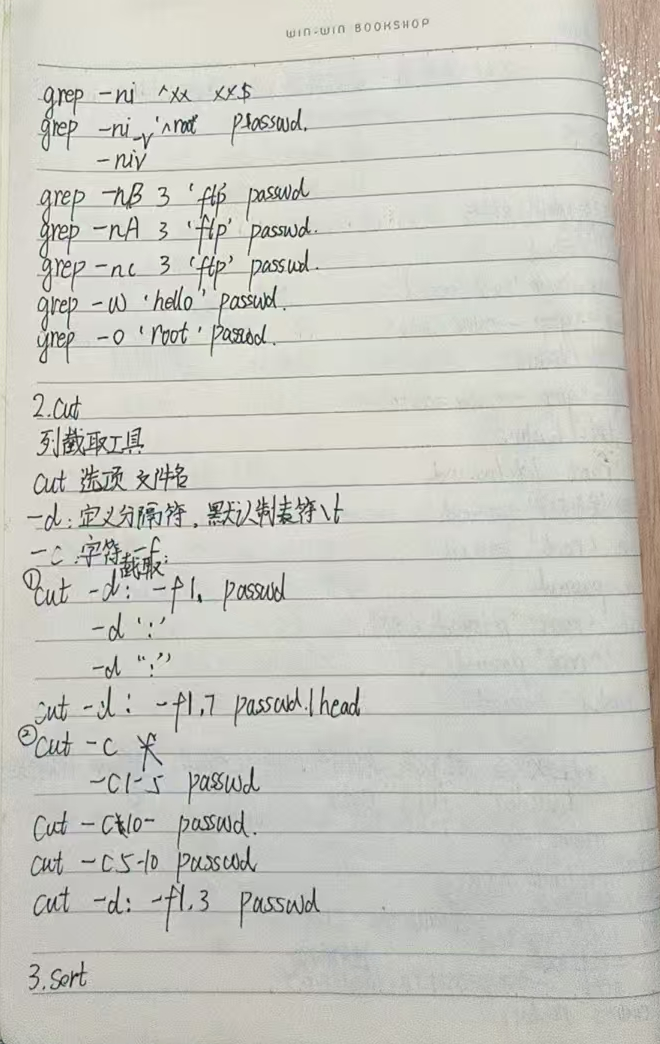 WIN-WIN BOOKSHOP
grep -ni ^xx xx$
grep -ni -v '^root passwd.
-niv
grep -nB 3 'ftp' passwd
grep -nA 3 'ftp' passwd.
grep -nc 3 'ftp' passwd.
grep -w 'hello' passwd.
grep -o 'root' passwd.
2.cut
列截取工具
cut 选项 文件名
-d:定义分隔符,默认制表符\t
-c:字符 -f:
截取
①cut -d: -f1. passwd
-d ':'
-d ":"
cut -d: -f1,7 passwd.|head
②cut -c
-c1-5 passwd
cut -c10- passwd.
cut -c5-10 passwd
cut -d: -f1.3 passwd
3.sort